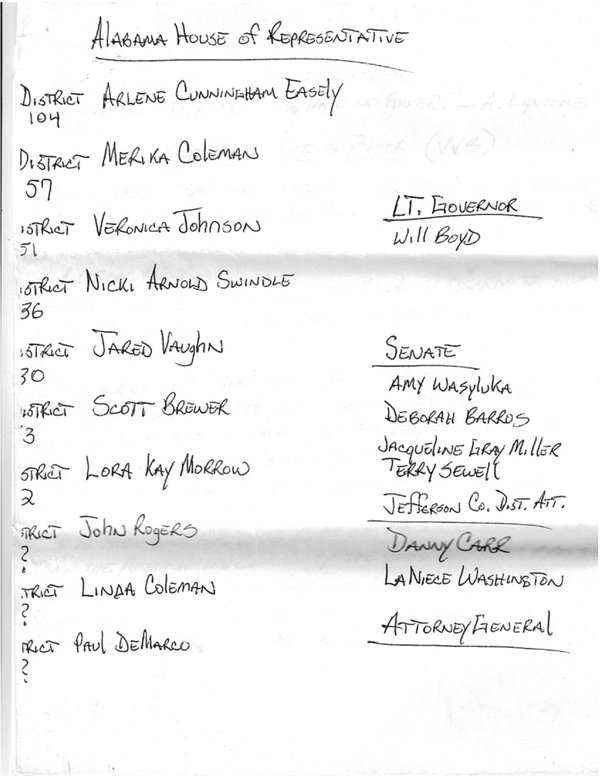 ALABAMA HOUSE OF REPRESENTATIVE
DISTRICT ARLENE CUNNINGHAM EASELY
104
DISTRICT MERIKA COLEMAN
57
ISTRICT VERONICA JOHNSON
51
ISTRICT NICKI ARNOLD SWINDLE
36
ISTRICT JARED VAUGHN
30
ISTRICT SCOTT BREWER
3
STRICT LORA KAY MORROW
2
TRICT JOHN ROGERS
?
TRICT LINDA COLEMAN
?
TRICT PAUL DEMARCO
?
LT. GOVERNOR
WILL BOYD
SENATE
AMY WASYLUKA
DEBORAH BARROS
JACQUELINE GRAY MILLER
TERRY SEWELL
JEFFERSON CO. DIST. ATT.
DANNY CARR
LANIECE WASHINGTON
ATTORNEY GENERAL